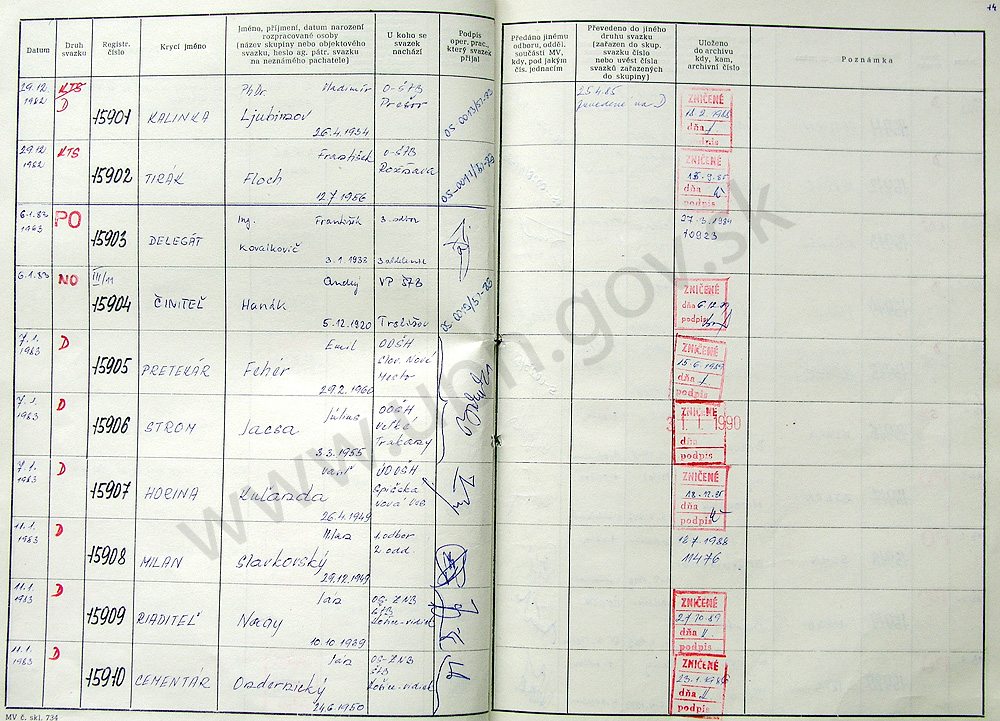 14
Datum
Druh svazku
Registr. číslo
Krycí jméno
Jméno, příjmení, datum narození rozpracované osoby (název skupiny nebo objektového svazku, heslo ag. pátr. svazku na neznámého pachatele)
U koho se svazek nachází
Podpis oper. prac., který svazek přijal
Předáno jinému odboru, odděl. součásti MV, kdy, pod jakým čís. jednacím
Převedeno do jiného druhu svazku (zařazen do skup. svazku číslo nebo uvést čísla svazků zařazených do skupiny)
Uloženo do archivu kdy, kam, archivní číslo
Poznámka
29.12. 1982 KTS D 15901 KALINKA PhDr Vladimír Ljubimov 26.4.1934 O-ŠTB Prešov 25.4.85 prevedené na D ZNIČENÉ dňa
29.12 1982 KTS 15902 TIRÁK František Floch 12.7.1956 O-ŠTB Rožňava ZNIČENÉ dňa podpis
6.1.83 1983 PO 15903 DELEGÁT Ing. František Kovalkovič 3.1.1933 3. odbor 3 oddelenie 27.3.1984 10923
6.1.83 NO III/11 15904 ČINITEĽ Ondrej Hanák 5.12.1920 VP ŠTB Trebišov ZNIČENÉ dňa podpis
7.1. 1983 D 15905 PRETEKÁR Emil Fehér 29.2.1960 OOŠH Slov. Nové Mesto ZNIČENÉ 15.6.1989 dňa podpis
7.1. 1983 D 15906 STROM Július Jacsa 3.3.1955 OOŠH Veľké Trakany ZNIČENÉ 31.1.1990 dňa podpis
7.1. 1983 D 15907 HORINA Kulanda 26.4.1949 OOŠH Spišská Nová Ves ZNIČENÉ 18.12.85 dňa podpis
11.1. 1983 D 15908 MILAN Milan Slavkovský 29.12.1949 1. odbor 2 odd 12.7.1988 11476
11.1. 1983 D 15909 RIADITEĽ Ján Nagy 10.10.1939 OS-ZNB ŠTB Košice-vidiek ZNIČENÉ 27.10.89 dňa podpis
11.1. 1983 D 15910 CEMENTÁR Ján 24.6.1950 OS-ZNB ŠTB Košice-vidiek ZNIČENÉ dňa podpis
MV č. skl. 734
www.upn.gov.sk